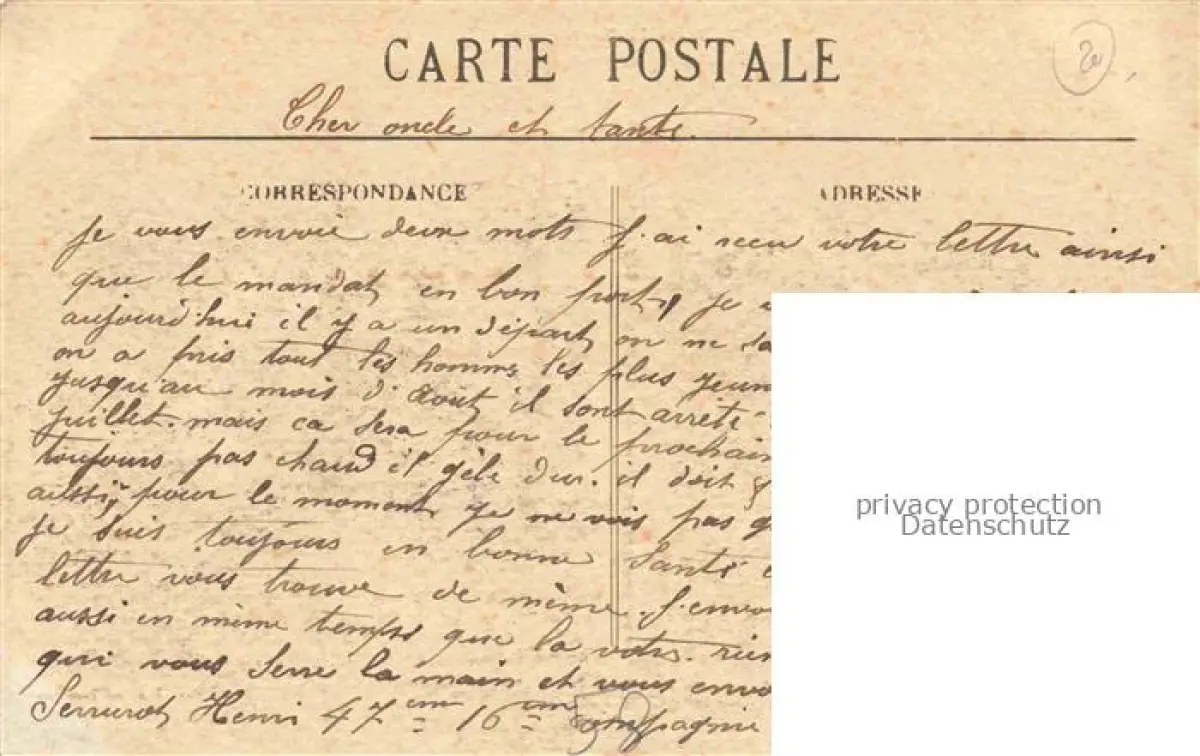 CARTE POSTALE
2e
Cher oncle et tante.
CORRESPONDANCE
ADRESSE
je vous envoie deux mots j. ai recu votre lettre ainsi
que le mandat en bon port, je
aujourd'hui il y a un départ on ne
on a pris tout les hommes les plus jeun
jusqu'au mois d'Août il sont arrêté
juillet. mais ca sera pour le prochain
toujours pas chaud il gèle dur. il doit
aussi, pour le moment je ne vois pas
je suis toujours en bonne santé
lettre vous trouve de même. J. envo
aussi en même temps que la votre. rien
qui vous serre la main et vous envo
Serrurot Henri 47 eme 16 eme compagnie
privacy protection
Datenschutz